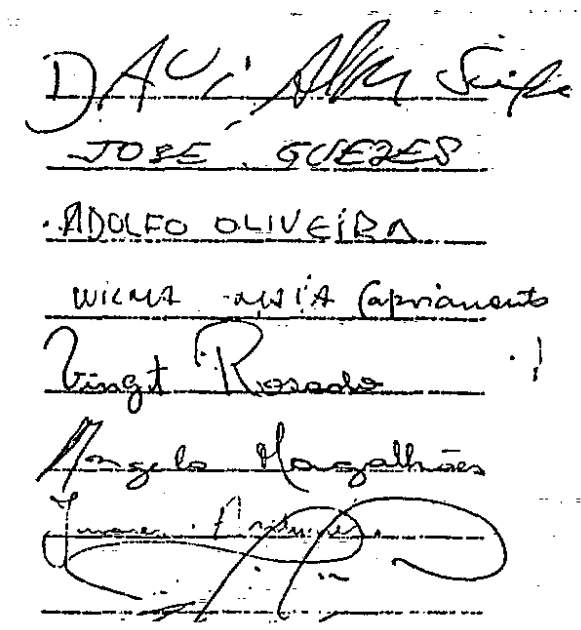 DAVi Alves Silva
JOSÉ GUEDES
ADOLFO OLIVEIRA
WILMA MAIA (apoiamento
Vingt Rosado
Angelo Magalhães